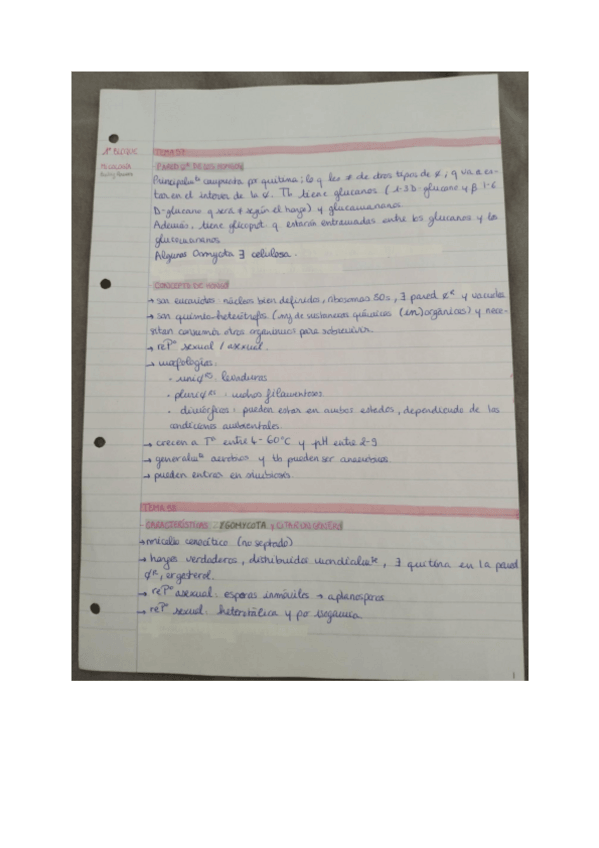 1er BLOQUE
TEMA 57
MICOLOGÍA
PARED DE LOS HONGOS
Principal compuesta por quitina; lo q les ≠ de otros tipos de ¢, q va a es-
tar en el interior de la ¢. Tb tiene glucanos (1-3 D-glucano y β 1-6
D-glucano q será ≠ según el hongo) y glucomananos.
Además, tiene glicoprot. q estarán entramadas entre los glucanos y los
glucomananos.
Algunos Oomycota ∃ celulosa.
CONCEPTO DE HONGO
→ son eucariotas: núcleos bien definidos, ribosomas 80s, ∃ pared ¢ar y vacuola
→ son quimio-heterótrofos (de sustancias químicas (in)orgánicas) y nece-
sitan consumir otros organismos para sobrevivir.
→ repº sexual / asexual.
→ morfologías:
· uni¢ar: levaduras
· pluri¢ar: mohos filamentosos
· dimórficos: pueden estar en ambos estados, dependiendo de las
condiciones ambientales.
→ crecen a Tª entre 4-60°C y pH entre 2-9
→ general aerobios y tb pueden ser anaerobios.
→ pueden entrar en simbiosis.
TEMA 58
CARACTERÍSTICAS ZYGOMYCOTA y CITAR LOS GÉNEROS
→ micelio cenocítico (no septado)
→ hongos verdaderos, distribuidos mundial, ∃ quitina en la pared
¢ar, ergosterol.
→ repº asexual: esporas inmóviles → aplanosporas
→ repº sexual: heterotálica y por
1